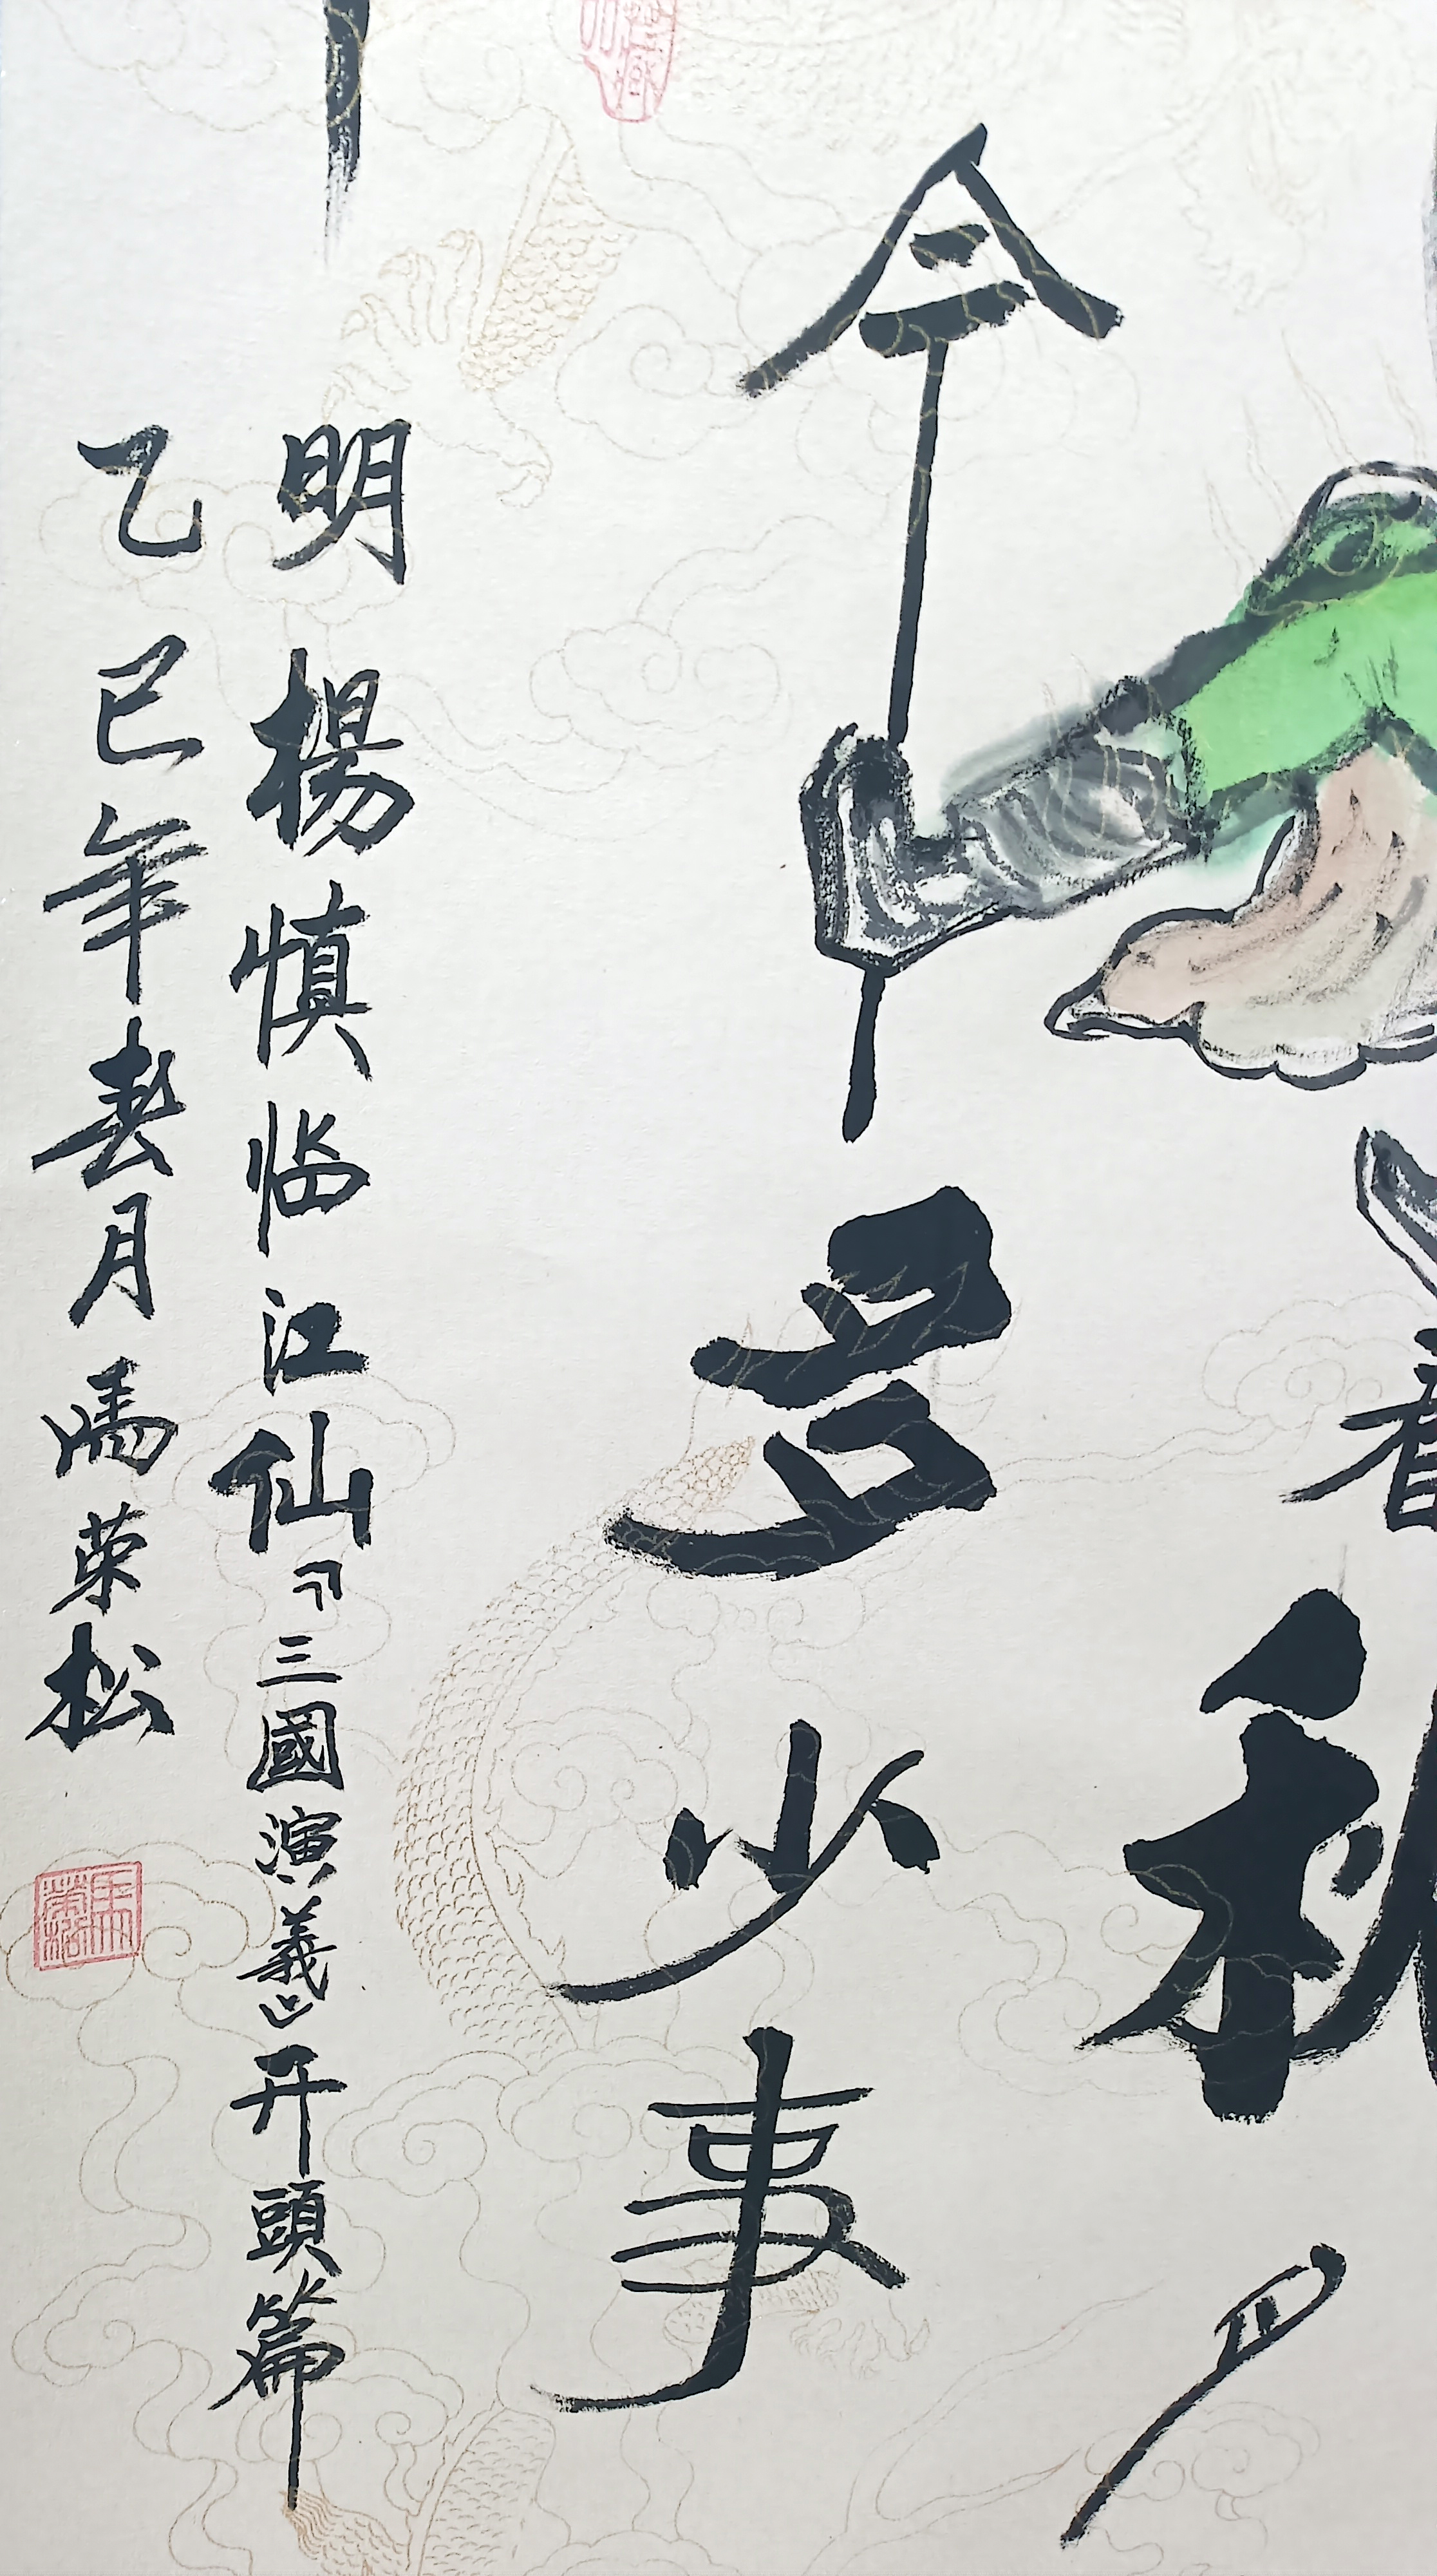 看秋月
今多少事
明楊慎临江仙『三國演義』开頭篇
乙巳年春月馮荣松